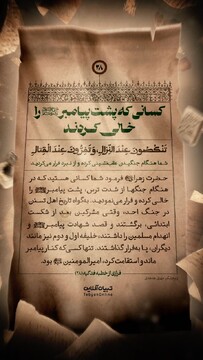 ۳۸
کسانی که پشت پیامبر ﷺ را
خالی کردند
تَنْکُصُونَ عِنْدَ النِّزالِ وَ تَفِرُّونَ عِنْدَ الْقِتالِ
شما هنگام جنگیدن عقب‌نشینی کرده و از نبرد فرار می‌کردید.
حضرت زهرا فرمود شما کسانی هستید که در
هنگام جنگ‌ها از شدت ترس، پشت پیامبر ﷺ را
خالی کرده و فرار می‌نمودید. به‌گواه تاریخ اهل تسنن
در جنگ احد، وقتی مشرکین بعد از شکست
ابتدائی، برگشتند و قصد شهادت پیامبر ﷺ و
انهدام مسلمین را داشتند، خلیفه اول و دوم نیز مانند
دیگران، پا به فرار گذاشتند. تنها کسی که کنار پیامبر
ماند و استقامت کرد، امیرالمومنین بود.
فرازی از خطبه فدکیه (۲۸)
تبیان‌آنلاین
TebyanOnline